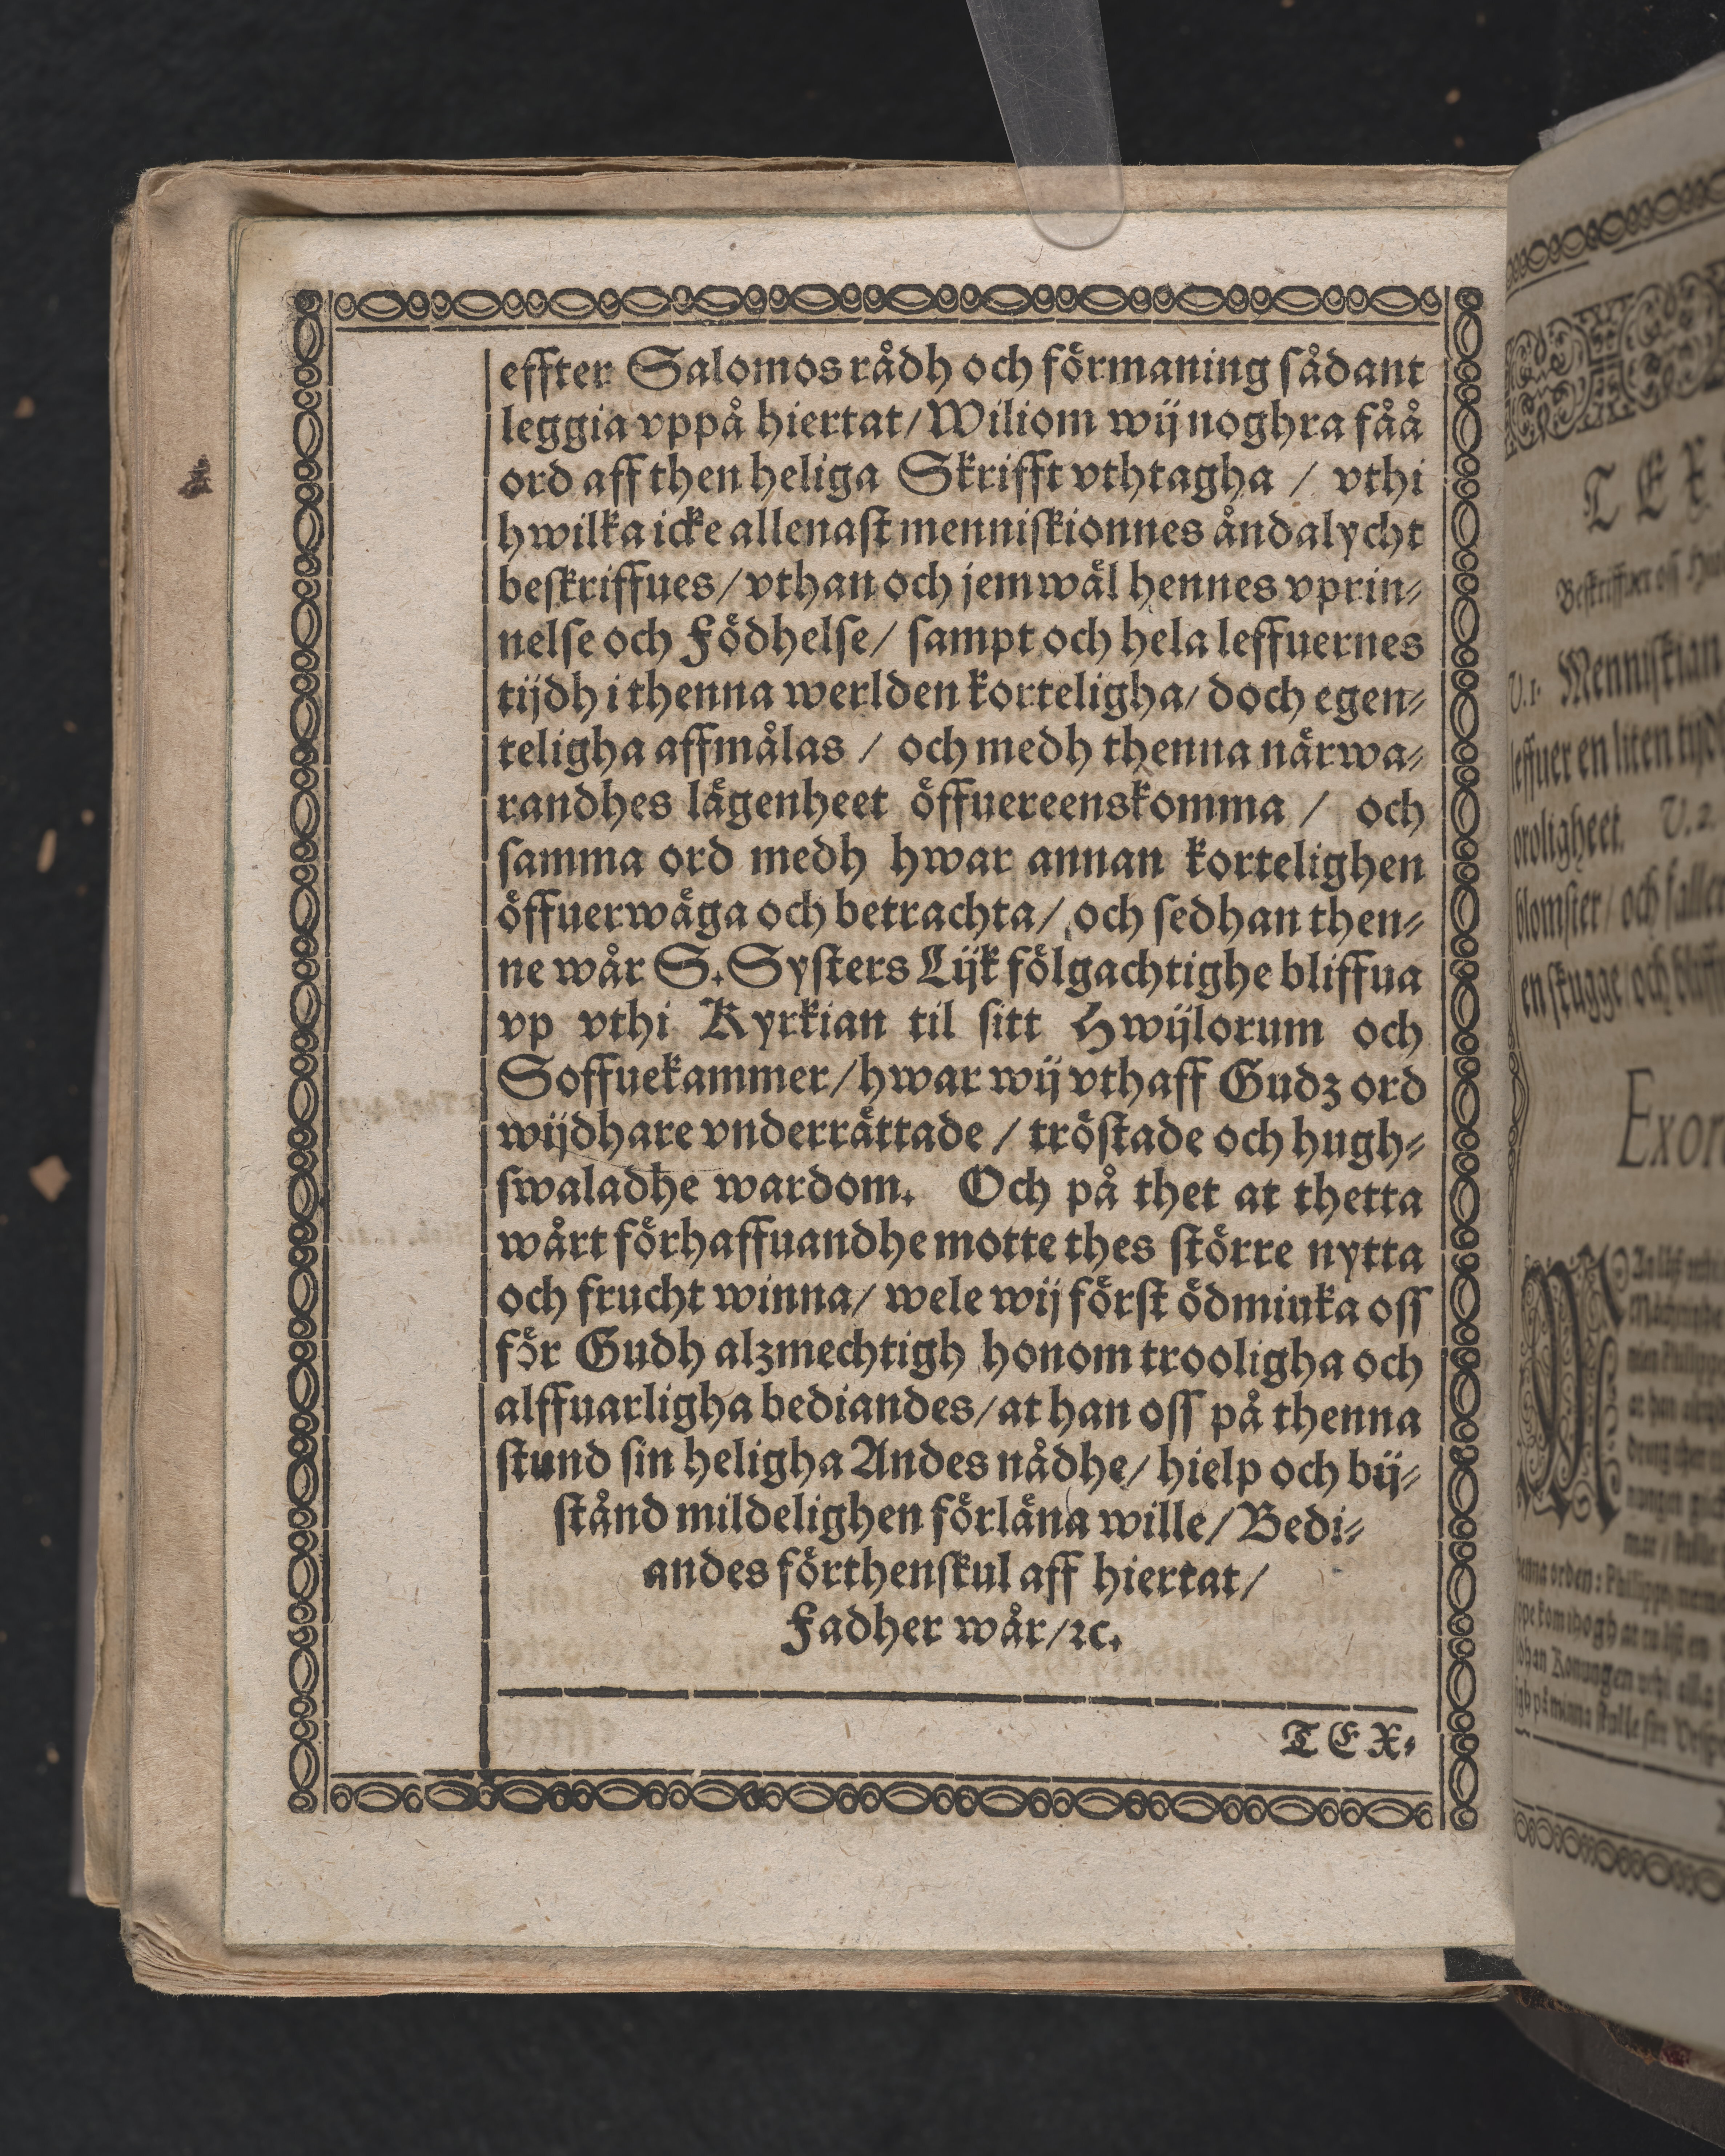 effter Salomos rådh och förmaning sådant
leggia vppå hiertat/ Wiliom wij noghra fåå
ord aff then heliga Skrifft vthtagha / vthi
hwilka icke allenast menniskionnes åndalycht
beskriffues/ vthan och jemwäl hennes vprin⸗
nelse och Födhelse/ sampt och hela leffuernes
tijdh i thenna werlden korteligha/ doch egen⸗
teligha affmålas / och medh thenna närwa⸗
randhes lägenheet öffuereenskomma / och
samma ord medh hwar annan kortelighen
öffuerwäga och betrachta/ och sedhan then⸗
ne wår S. Systers Lijk fölgachtighe bliffua
vp vthi Kyrkian til sitt Hwijlorum och
Soffuekammer/ hwar wij vthaff Gudz ord
wijdhare vnderrättade / tröstade och hugh⸗
swaladhe wardom. Och på thet at thetta
wårt förhaffuandhe motte thes större nytta
och frucht winna/ wele wij först ödmiuka oss
för Gudh alzmechtigh honom trooligha och
alffuarligha bediandes/ at han oss på thenna
stund sin heligha Andes nådhe/ hielp och bij⸗
stånd mildelighen förläna wille/ Bedi⸗
andes förthenskul aff hiertat/
Fadher wår/ ꝛc.
TEX⸗
TEX
Beskriffuer oss
V. 1. Menniskian
leffuer en liten tijdh
oroligheet. V. 2.
blomster/ och faller
en skugge/ och
Exor